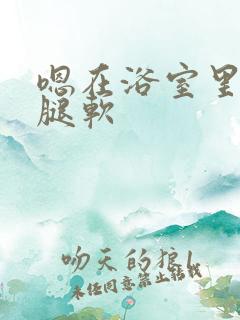 嗯在浴室里
腿软
吻天的狼l
未经同意禁止转载